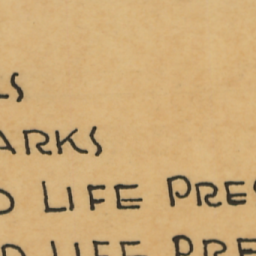 LS
ARKS
D LIFE PRES
D LIFE PRE